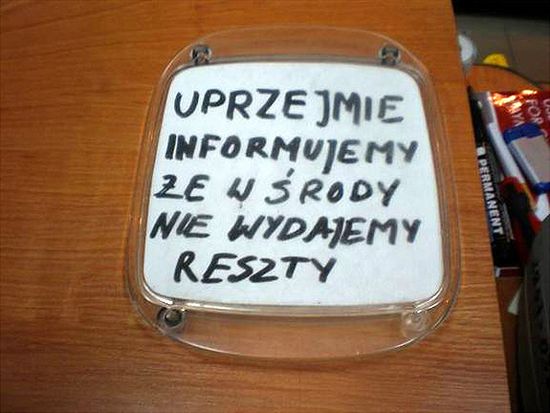 UPRZEJMIE
INFORMUJEMY
ŻE W ŚRODY
NIE WYDAJEMY
RESZTY
PERMANENT